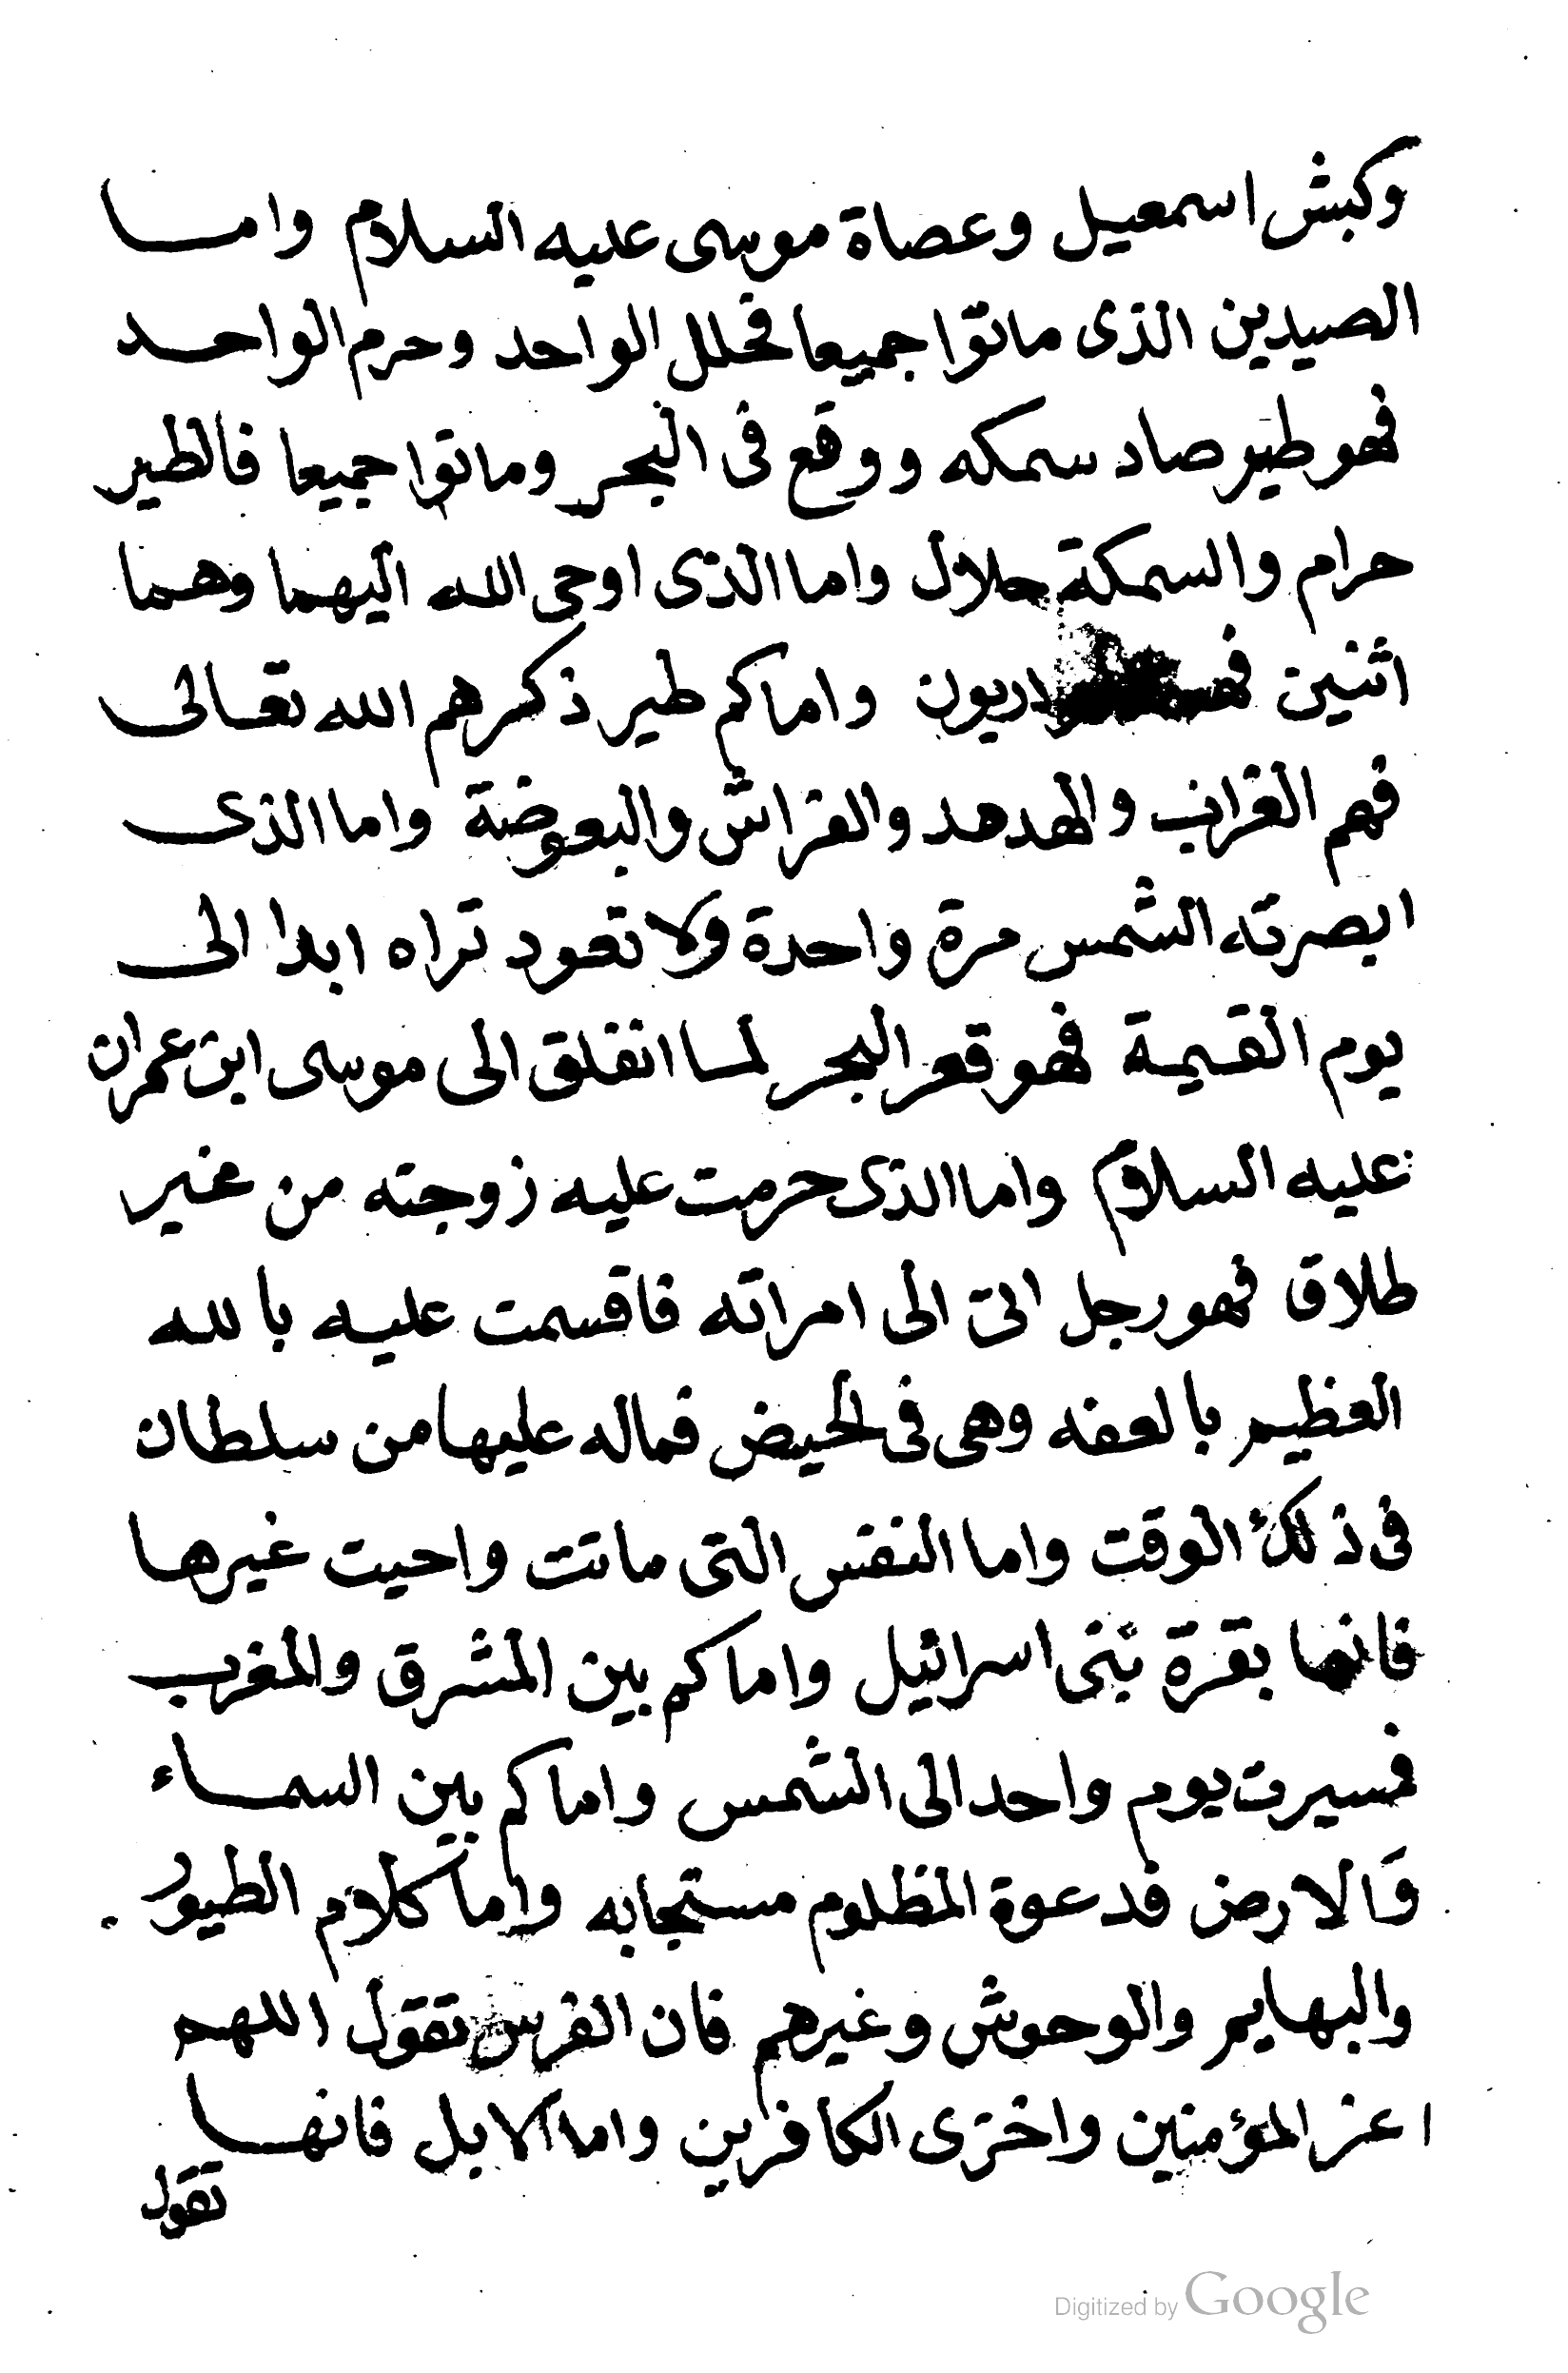 وكبش اسمعيل وعصاة موسى عليه السلام واما
الصيدين الذى ماتوا جميعا فحلل الواحد وحرم الواحد
فهو طير صاد سمكه ووقع فى البحر وماتوا جميعا فالطير
حرام والسمكة حلال واما الذى اوحى الله اليهما وهما
اثنين واماكم طير ذكرهم الله تعالى
فهم الغراب والهدهد والفراش والبعوضة واما الذى
ابصرته الشمس مرة واحدة ولا تعود تراه ابدا الى
يوم القيمة فهو قعر البحر لما انفلق الى موسى ابن عمران
عليه السلام واما الذى حرمت عليه زوجته من غير
طلاق فهو رجل اتى الى امراته فاقسمت عليه بالله
العظيم بالعفه وهى فى الحيض فماله عليها من سلطان
فى ذلك الوقت واما النفس التى ماتت واحيت غيرها
فانها بقرة بنى اسرائيل واماكم بين المشرق والمغرب
فمسيرت يوم واحد الى الشمس واماكم بين السماء
والارض فدعوة المظلوم مستجابه واما كلام الطيور
والبهايم والوحوش وغيرهم فان الفرس تقول اللهم
اعز المؤمنين واخزى الكافرين واما الابل فانها
تقول
Digitized by Google